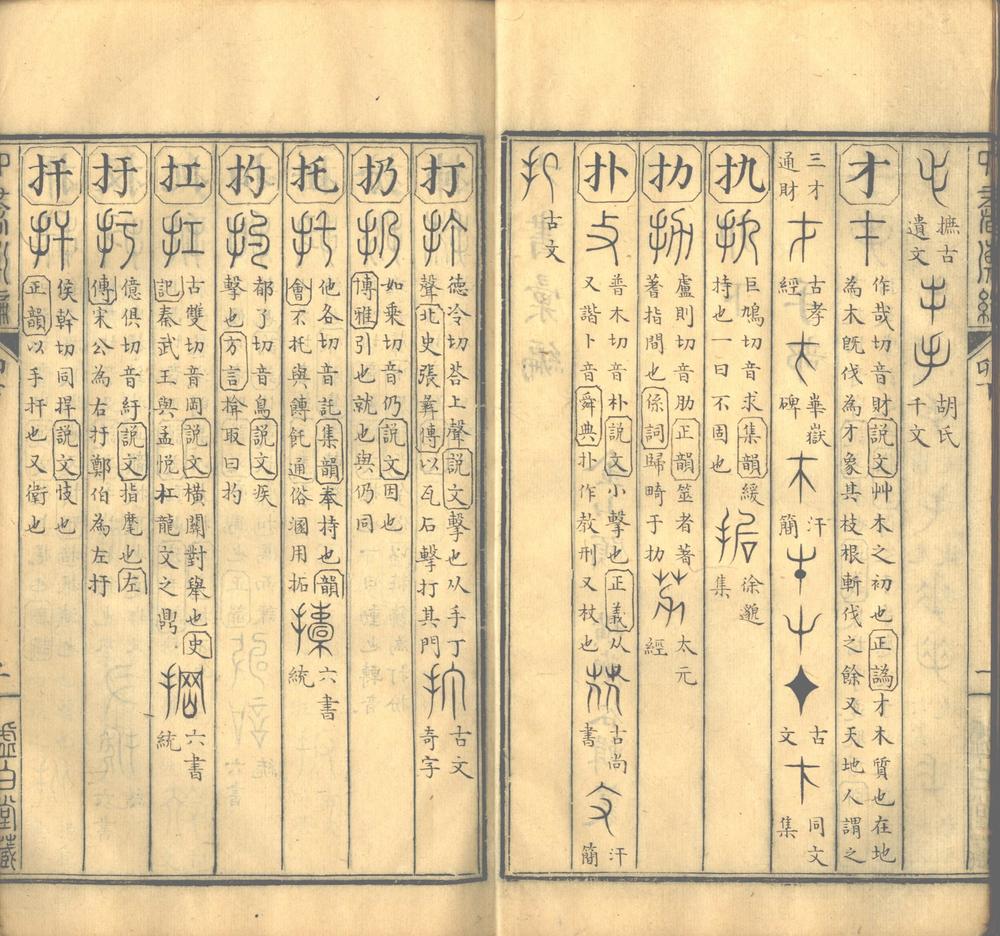 摭古遺文 胡氏千文
才 作哉切音財說文艸木之初也正譌才木質也在地
為木旣伐為才象其枝根斬伐之餘又天地人謂之
三才通財 古孝經 華嶽碑 汗簡 古文 同文集
扏 巨鳩切音求集韻緩
持也一曰不固也 徐邈集
扐 盧則切音肋正韻筮者著
蓍指間也係詞歸畸于扐 太元經
扑 普木切音朴說文小擊也正義从
又諧卜音舜典扑作敎刑又杖也 古尚書 汗簡
古文
打 德冷切答上聲說文擊也从手丁
聲北史張彝傳以瓦石擊打其門 古文奇字
扔 如乗切音仍說文因也
博雅引也就也與仍同
托 他各切音託集韻奉持也韻
會不托與餺飥通俗溷用拓 六書統
扚 都了切音鳥說文疾
擊也方言揜取曰扚
扛 古雙切音岡說文橫關對舉也史
記秦武王與孟悦扛龍文之鼎 六書統
扜 億俱切音紆說文指麾也左
傳宋公為右扜鄭伯為左扜
扞 侯幹切同捍說文忮也
正韻以手扞也又衛也
虛白堂藏